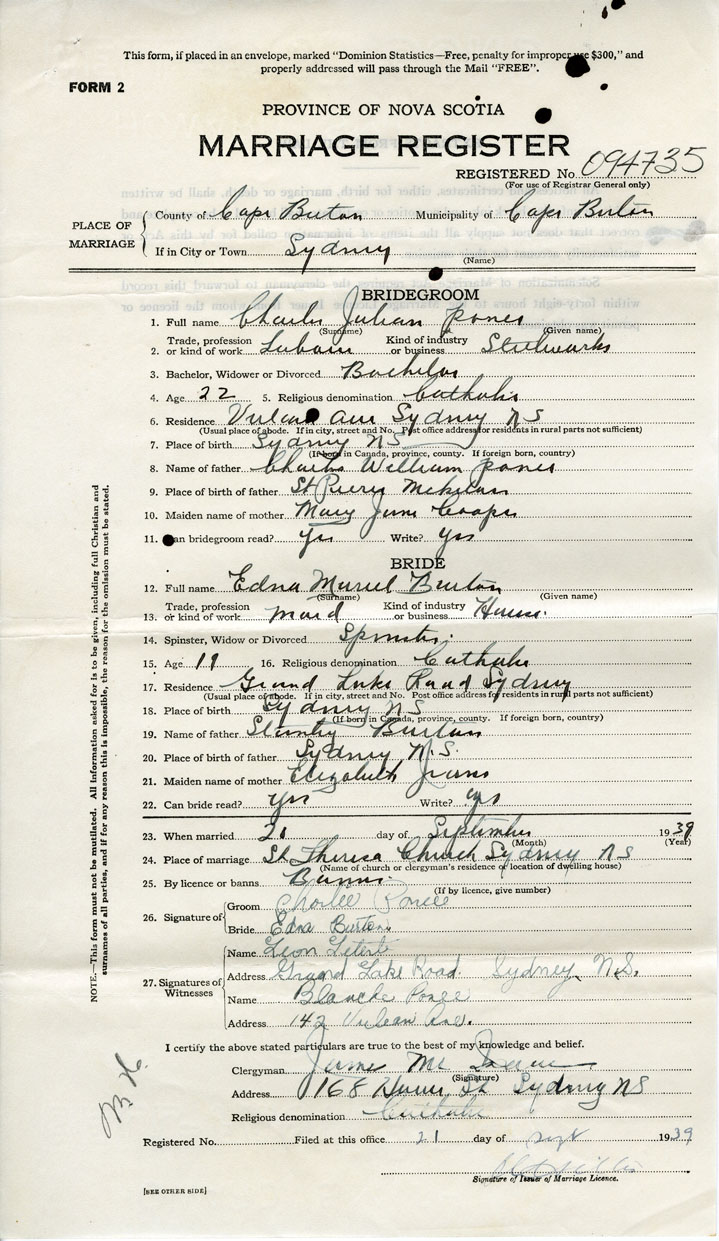 This form, if placed in an envelope, marked "Dominion Statistics—Free, penalty for improper use $300," and
properly addressed will pass through the Mail "FREE".
FORM 2
PROVINCE OF NOVA SCOTIA
MARRIAGE REGISTER
REGISTERED No. 094735
(For use of Registrar General only)
PLACE OF MARRIAGE
County of Cape Breton Municipality of Cape Breton
If in City or Town Sydney
(Name)
BRIDEGROOM
1. Full name Charles Julian
(Surname) (Given name)
2. Trade, profession or kind of work Labour Kind of industry or business Steelworks
3. Bachelor, Widower or Divorced Bachelor
4. Age 22 5. Religious denomination Catholic
6. Residence Vulcan Ave Sydney NS
(Usual place of abode. If in city, street and No. Post office address for residents in rural parts not sufficient)
7. Place of birth Sydney NS
(If born in Canada, province, county. If foreign born, country)
8. Name of father Charles William
9. Place of birth of father St Pierre
10. Maiden name of mother Mary Jane Cooper
11. Can bridegroom read? yes Write? yes
BRIDE
12. Full name Edna Muriel Burton
(Surname) (Given name)
13. Trade, profession or kind of work maid Kind of industry or business House
14. Spinster, Widow or Divorced Spinster
15. Age 19 16. Religious denomination Catholic
17. Residence Grand Lake Road Sydney
(Usual place of abode. If in city, street and No. Post office address for residents in rural parts not sufficient)
18. Place of birth Sydney NS
(If born in Canada, province, county. If foreign born, country)
19. Name of father Stanley Burton
20. Place of birth of father Sydney N.S.
21. Maiden name of mother Elizabeth
22. Can bride read? yes Write? yes
23. When married 21 day of September 1939
(Month) (Year)
24. Place of marriage St. Theresa Church Sydney NS
(Name of church or clergyman's residence or location of dwelling house)
25. By licence or banns Banns
(If by licence, give number)
26. Signature of
Groom Charlie
Bride Edna Burton
27. Signatures of Witnesses
Name Leon
Address Grand Lake Road. Sydney, N.S.
Name Blanche
Address 142 Vulcan Ave.
I certify the above stated particulars are true to the best of my knowledge and belief.
Clergyman
(Signature)
Address 168 St Sydney NS
Religious denomination Catholic
Registered No. Filed at this office 21 day of Sept 1939
Signature of Issuer of Marriage Licence.
[SEE OTHER SIDE]
NOTE.—This form must not be mutilated. All Information asked for is to be given, including full Christian and
surnames of all parties, and if for any reason this is impossible, the reason for the omission must be stated.